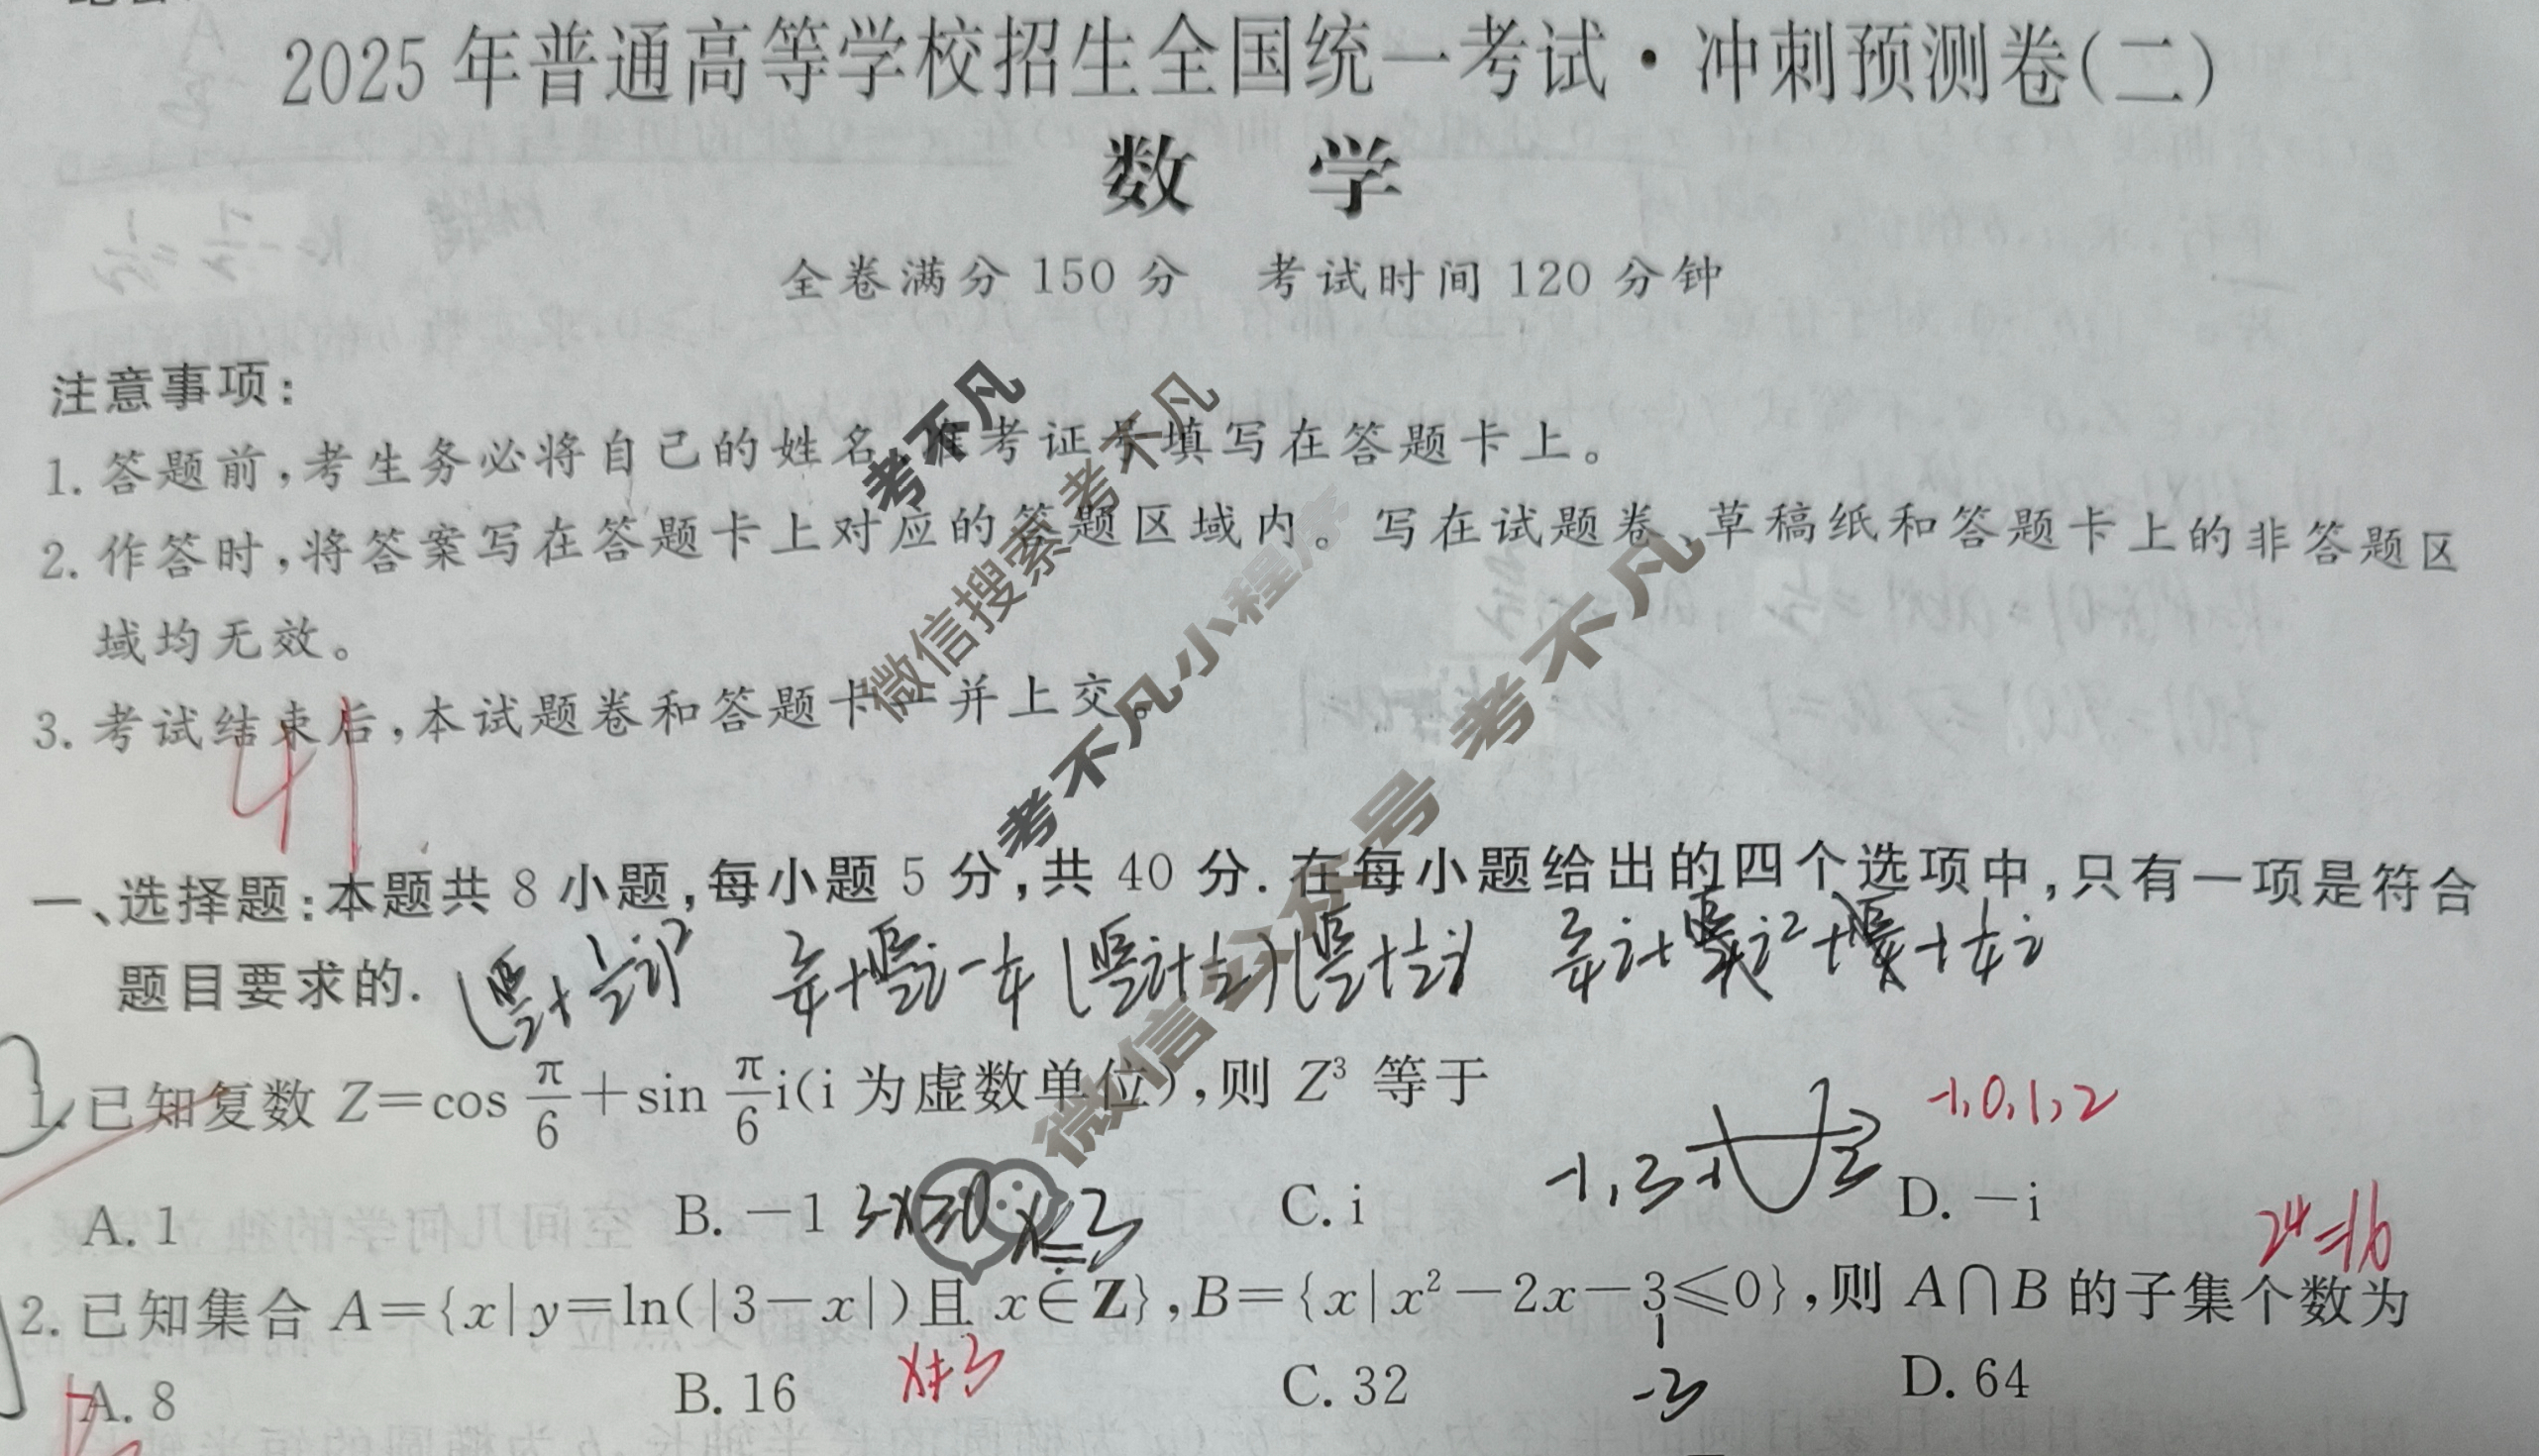 2025年普通高等学校招生全国统一考试·冲刺预测卷(二)
数 学
全卷满分 150 分 考试时间 120 分钟
注意事项:
1. 答题前,考生务必将自己的姓名、准考证号填写在答题卡上。
2. 作答时,将答案写在答题卡上对应的答题区域内。写在试题卷、草稿纸和答题卡上的非答题区
域均无效。
3. 考试结束后,本试题卷和答题卡一并上交。
41
考不凡
微信搜索考不凡
考不凡小程序
微信公众号 考不凡
一、选择题:本题共 8 小题,每小题 5 分,共 40 分. 在每小题给出的四个选项中,只有一项是符合
题目要求的.
(√3/2+1/2i)² 3/4+√3/2i-1/4 (√3/2i+1/2)(√3/2+1/2i) 3/4i+√3/4i²+√3/4+1/4i
1. 已知复数 Z=cos π/6+sin π/6 i(i 为虚数单位),则 Z³ 等于
-1,0,1,2
-1,3 -1 3
A. 1 B. -1 C. i D. -i
3-x≥0 x≤3
2⁴=16
2. 已知集合 A={x|y=ln(|3-x|)且 x∈Z},B={x|x²-2x-3≤0},则 A∩B 的子集个数为
A. 8 B. 16 C. 32 D. 64
x≠3
1
-3